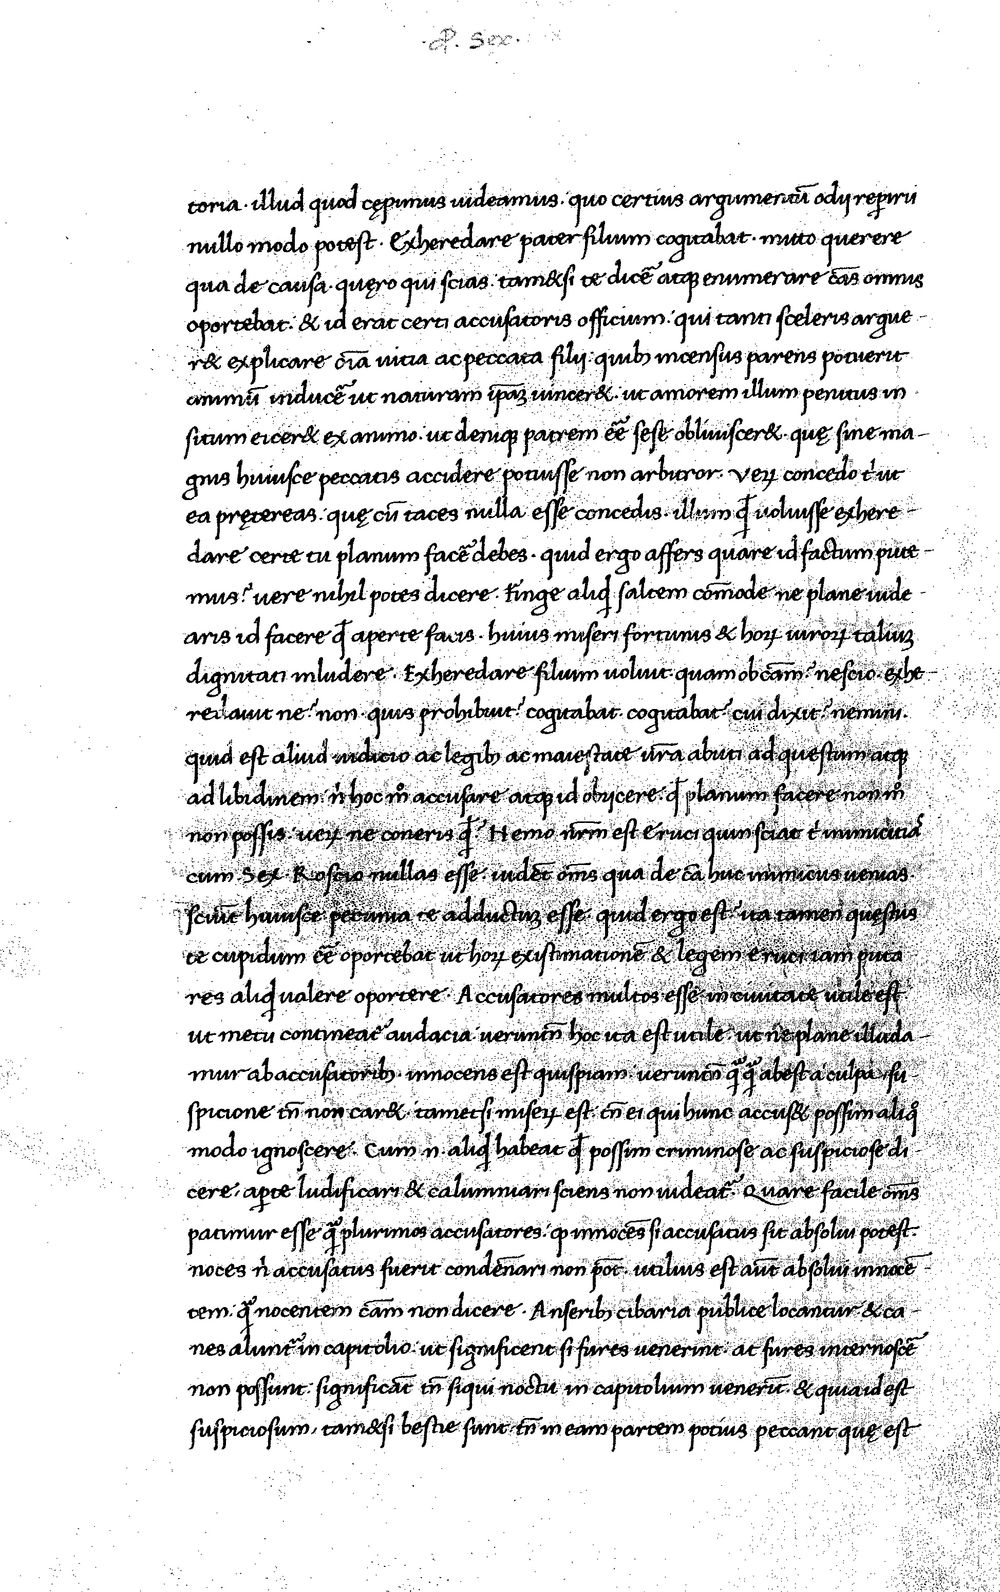 ·P· Sex·
toria · illud quod cępimus uideamus · quo certius argumentū odij reperiri
nullo modo potest · Exheredare pater filium cogitabat · mitto querere
qua de causa · quęro qui scias · tam&si te dicē atq; enumerare cās omnis
oportebat · & id erat certi accusatoris officium · qui tanti sceleris argue-
r& explicare oīa uitia ac peccata filij quib; incensus parens potuerit
animū inducē ut naturam ip̄aȝ uincer& · ut amorem illum penitus in
situm eicer& ex animo · ut deniq; patrem eē sese obliuiscer& · quę sine ma-
gnis huiusce peccatis accidere potuisse non arbitror · Veꝝ concedo t̄ ut
ea prętereas · quę cū taces nulla esse concedis · illum qđ uoluisse exhere-
dare certe tu planum facē debes · quid ergo affers quare id factum pute-
mus? uere nihil potes dicere · Finge aliqđ saltem cōmode ne plane uide-
aris id facere qđ aperte facis · huius miseri fortunis & hoꝝ uiroꝝ taliuȝ
dignitati inludere · Exheredare filium uoluit · quam ob cām? nescio · exhe-
redauit ne? non · quis prohibuit? cogitabat · cogitabat? cui dixit? nemini ·
quid est aliud iudicio ac legib; ac maiestate ūra abuti ad questum atq;
ad libidinem · n̄ hoc m̊ accusare atq; id obijcere · qđ planum facere non m̊
non possis · ueꝝ ne coneris qđ? Nemo nr̄m est Eruci quin sciat t̄ inimicitiā
cum Sex · Roscio nullas esse · uidēt om̄s qua de cā huc inimicus uenias ·
sciūt huiusce pecunia te adductuȝ esse · quid ergo est? ita tamen quęstus
te cupidum eē oportebat ut hoꝝ existimationē & legem Eruci iam puta
res aliqđ ualere oportere · Accusatores multos esse in ciuitate utile est
ut metu contineat̃ audacia uerunt̄n hoc ita est utile · ut ne plane illuda-
mur ab accusatorib; · innocens est quispiam uerunt̄n q̄q̄ abest a culpa · su-
spicione tn̄ non car& · tametsi miseꝝ est · tn̄ ei qui hunc accus& possim aliq̊
modo ignoscere · Cum n̄ aliqđ habeat qđ possim criminose ac suspiciose di-
cere, apte ludificari & calumniari sciens non uideat̃ · Quare facile om̄s
patimur esse q̄ plurimos accusatores · ꝙ innocēs si accusatus sit absolui potest ·
noces n̄ accusatus fuerit condēnari non pōt · utilius est aūt absolui innocē-
tem · q̄ nocentem cām non dicere · Anserib; cibaria publice locantur & ca-
nes alunt̃ in capitolio · ut significent si fures uenerint · at fures internoscē
non possunt · significāt tn̄ siqui noctu in capitolium uenerīt · & quia id est
suspiciosum, tam&si bestie sunt tn̄ in eam partem potius peccant quę est